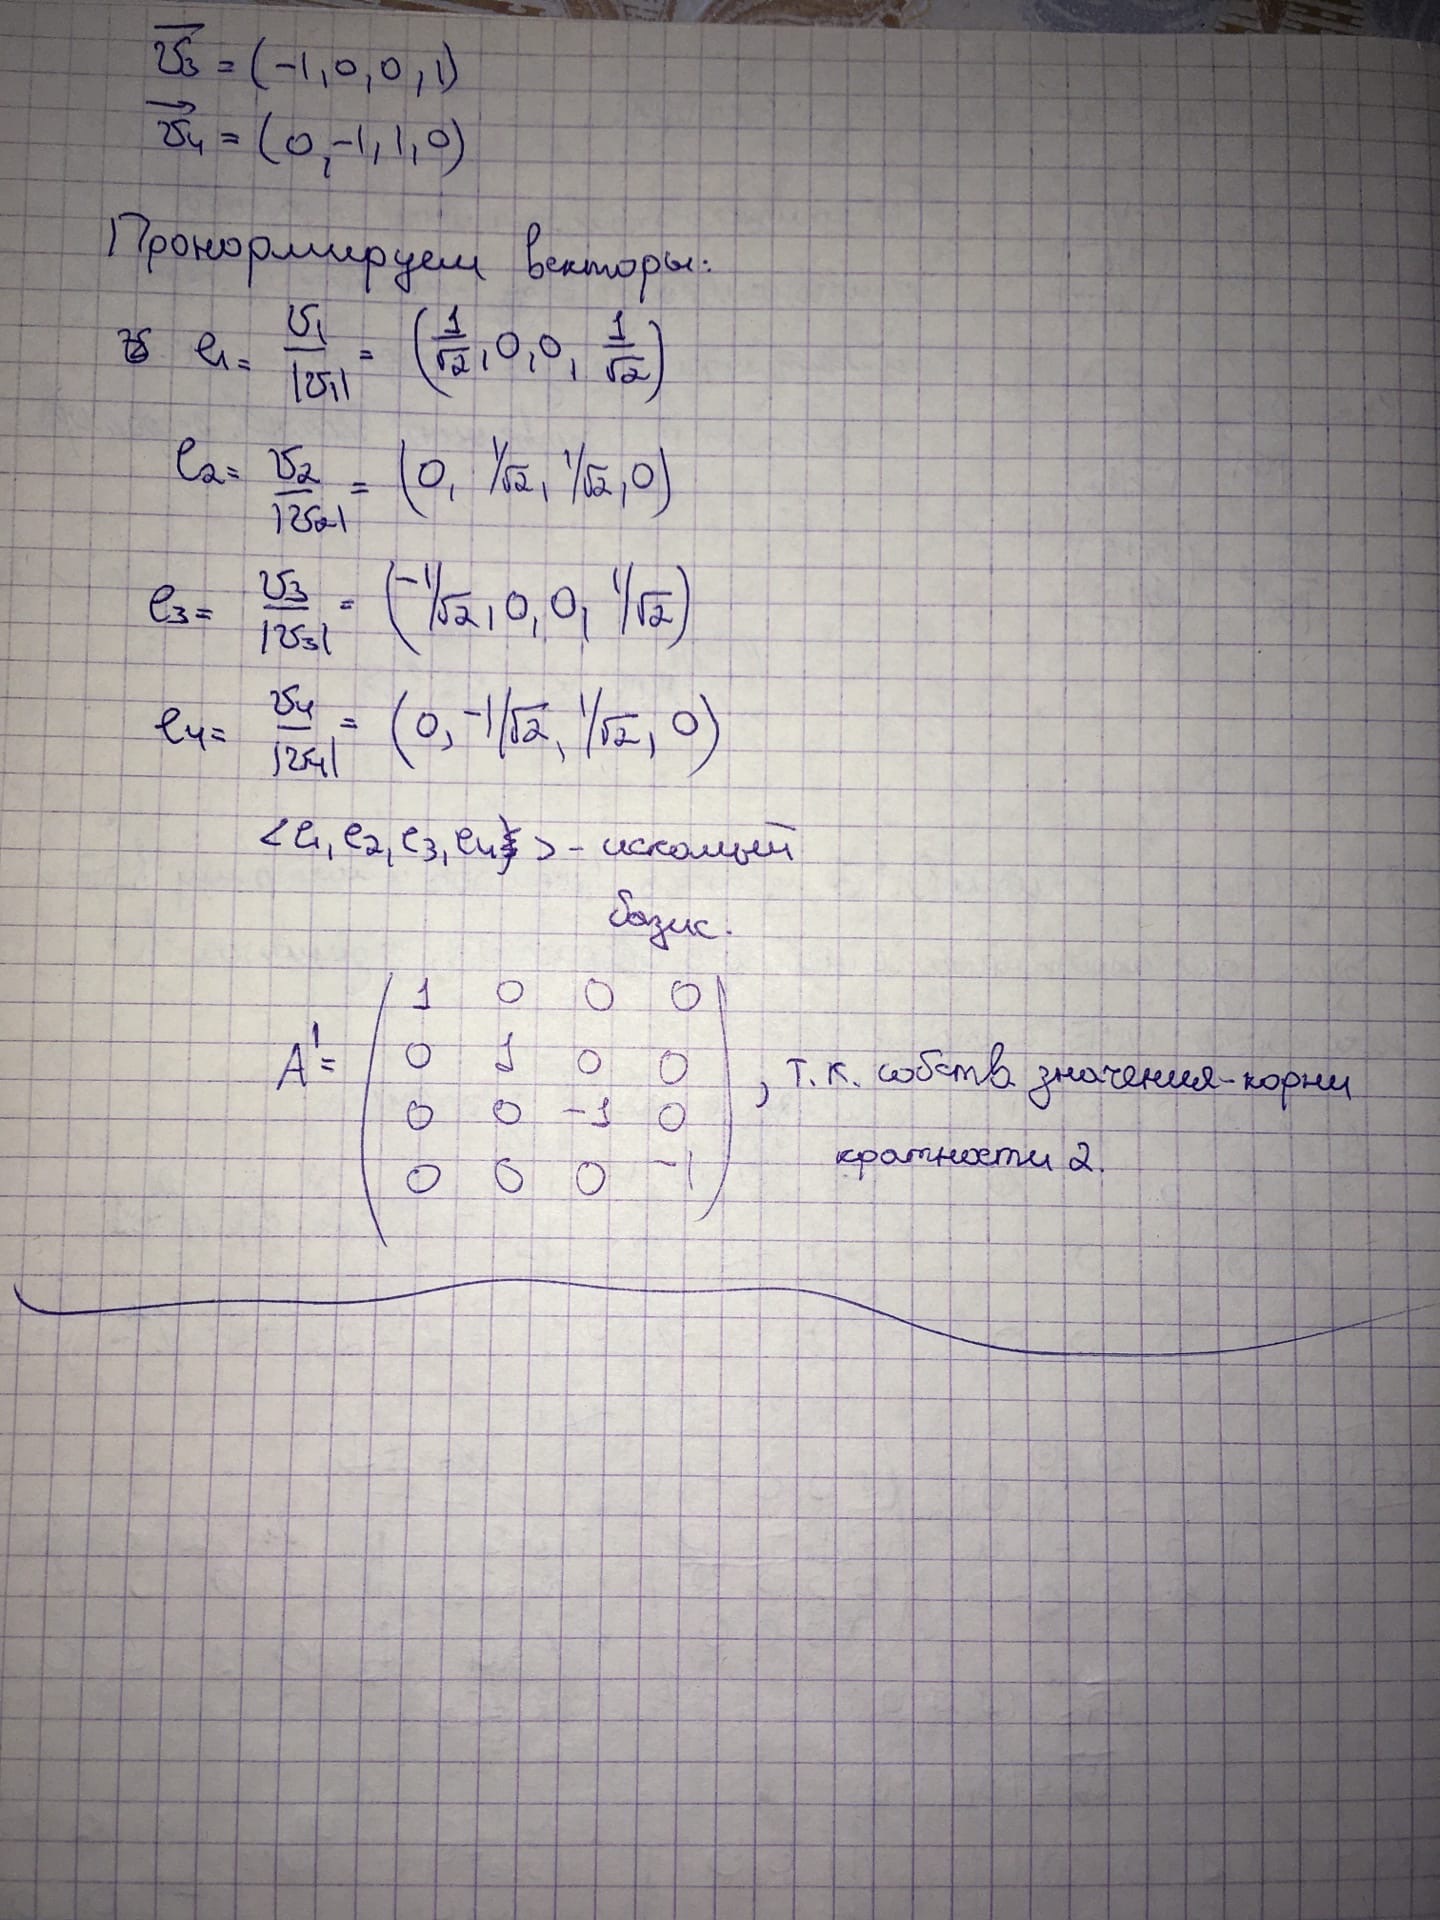 v₃ = (-1, 0, 0, 1)
v₄ = (0, -1, 1, 0)
Пронормируем векторы:
e₁ = v₁/|v₁| = (1/√2, 0, 0, 1/√2)
e₂ = v₂/|v₂| = (0, 1/√2, 1/√2, 0)
e₃ = v₃/|v₃| = (-1/√2, 0, 0, 1/√2)
e₄ = v₄/|v₄| = (0, -1/√2, 1/√2, 0)
<e₁, e₂, e₃, e₄> - искомый
базис.
1 0 0 0
A' = 0 1 0 0 , т.к. собств. значения - корни
0 0 -1 0
кратности 2.
0 0 0 -1